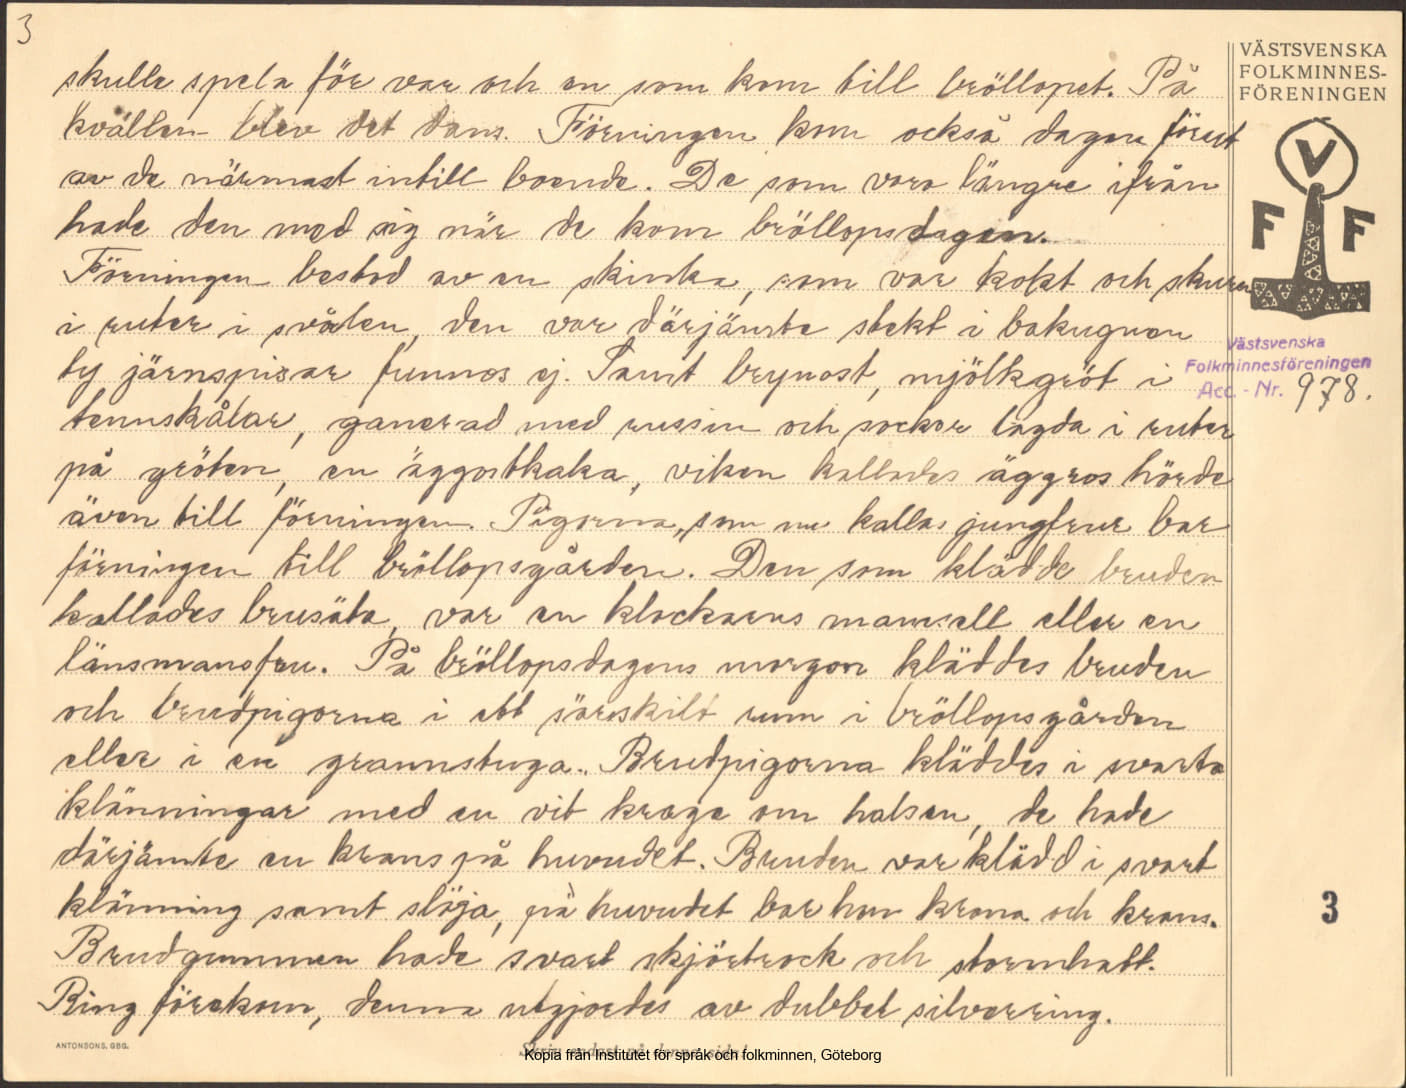 3
VÄSTSVENSKA
FOLKMINNES-
FÖRENINGEN
V
F F
Västsvenska
Folkminnesföreningen
Acc. - Nr. 978.
skulle spela för var och en som kom till bröllopet. På
kvällen blev det dans. Förningen kom också dagen förut
av de närmast intill boende. De som voro längre ifrån
hade den med sig när de kom bröllopsdagen.
Förningen bestod av en skinka, som var kokt och skuren
i ruter i svålen, den var därjämte stekt i bakugnen
ty järnspisar funnos ej. Samt brynost, mjölkgröt i
tennskålar, garnerad med russin och socker lagda i ruter
på gröten, en äggostkaka, viken kallades äggros hörde
även till förningen. Pigorna, som nu kallas jungfrur bar
förningen till bröllopsgården. Den som klädde bruden
kallades brusäta, var en klockarens mamsell eller en
länsmansfru. På bröllopsdagens morgon kläddes bruden
och brudpigorna i ett särskilt rum i bröllopsgården
eller i en grannstuga. Brudpigorna kläddes i svarta
klänningar med en vit krage om halsen, de hade
därjämte en krans på huvudet. Bruden var klädd i svart
klänning samt slöja, på huvudet bar hon krona och krans.
Brudgummen hade svart skjörtrock och stormhatt.
Ring förekom, denna utgjordes av dubbel silverring.
3
ANTONSONS, GBG.
Skriv endast på denna sida!
Kopia från Institutet för språk och folkminnen, Göteborg